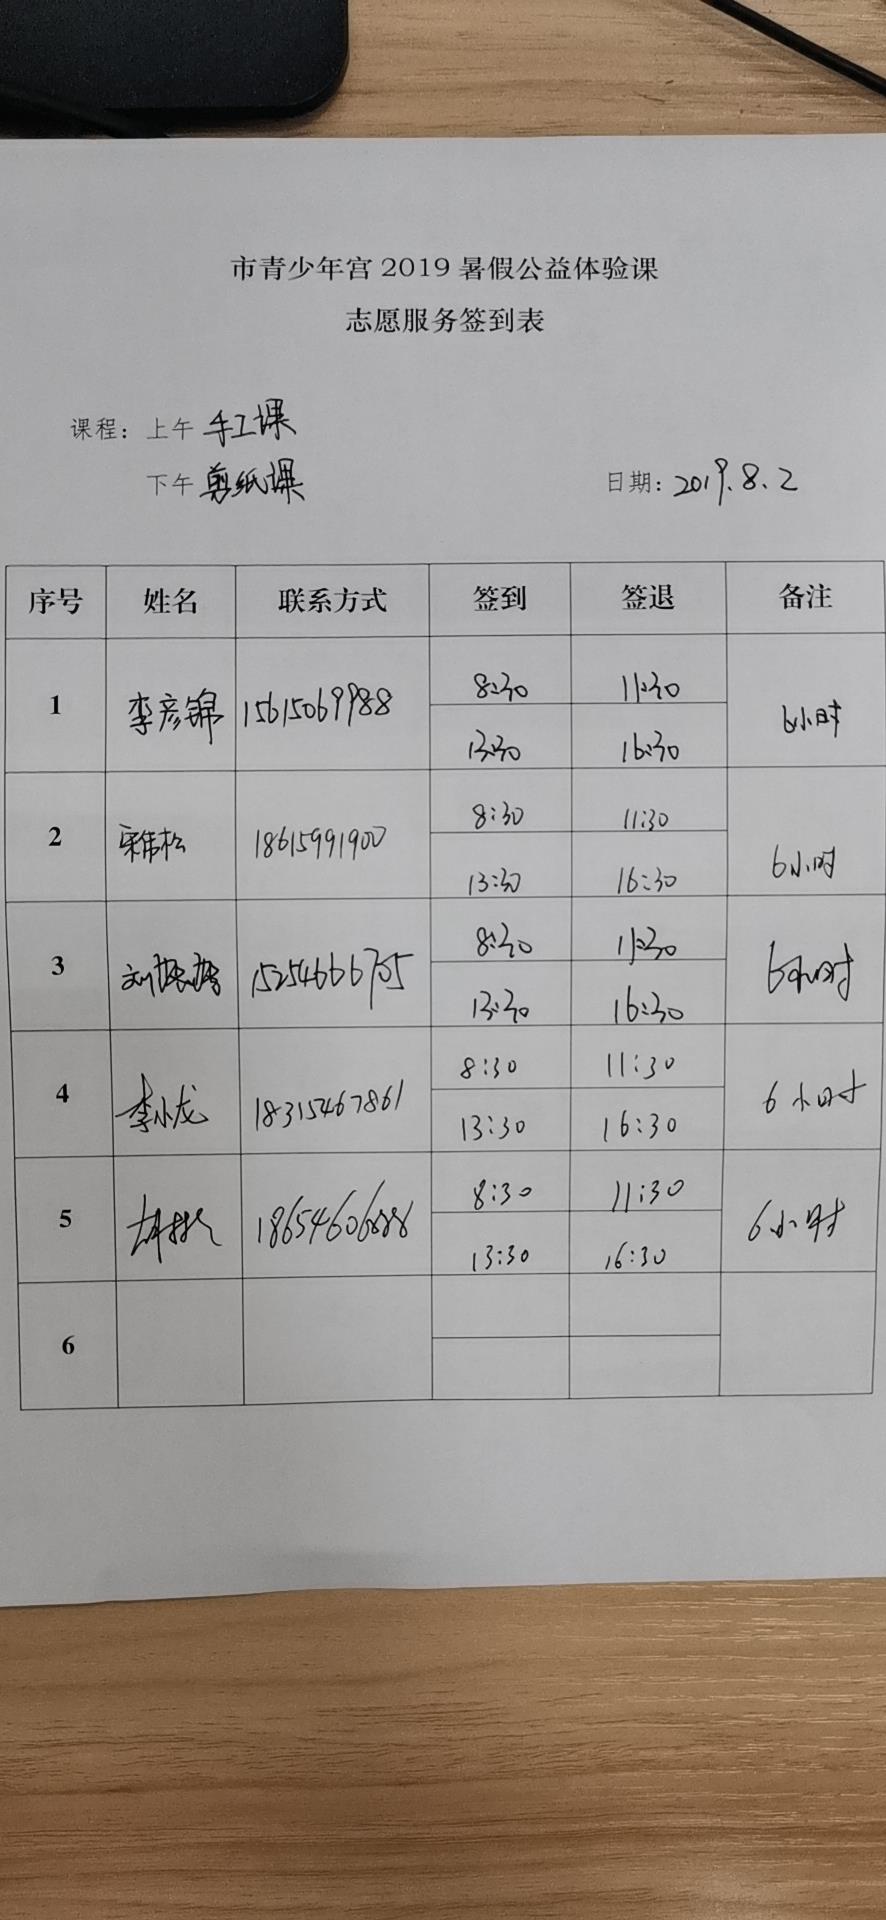 市青少年宫 2019 暑假公益体验课
志愿服务签到表
课程：上午 手工课
下午 剪纸课 日期：2019.8.2
序号 姓名 联系方式 签到 签退 备注
1 李彦锦 15615069988 8:30 11:30 6小时
13:30 16:30
2 松 18615991900 8:30 11:30 6小时
13:30 16:30
3 刘 15254666705 8:30 11:30 6小时
13:30 16:30
4 李小龙 18315467861 8:30 11:30 6小时
13:30 16:30
5 18654606888 8:30 11:30 6小时
13:30 16:30
6